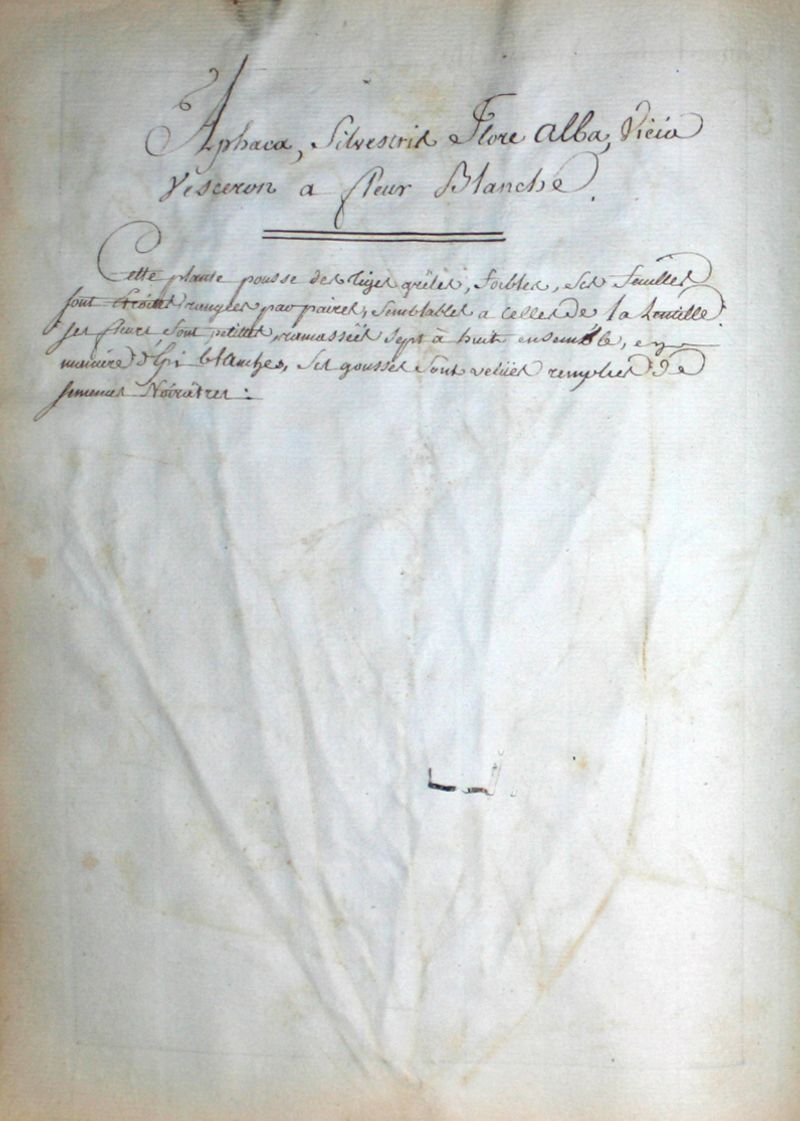 Aphaca, Silvestris Flore alba, Vicia
Vesceron a fleur Blanche.
Cette plante pousse des tiges grêles, foibles, ses feuilles
sont étroites rangées par paires, semblables a celles de la Lentille
ses fleurs sont petites, ramassées sept à huit ensemble, en
maniere d'Epi blanches, ses gousses sont veluës remplies de
semences Noirâtres :